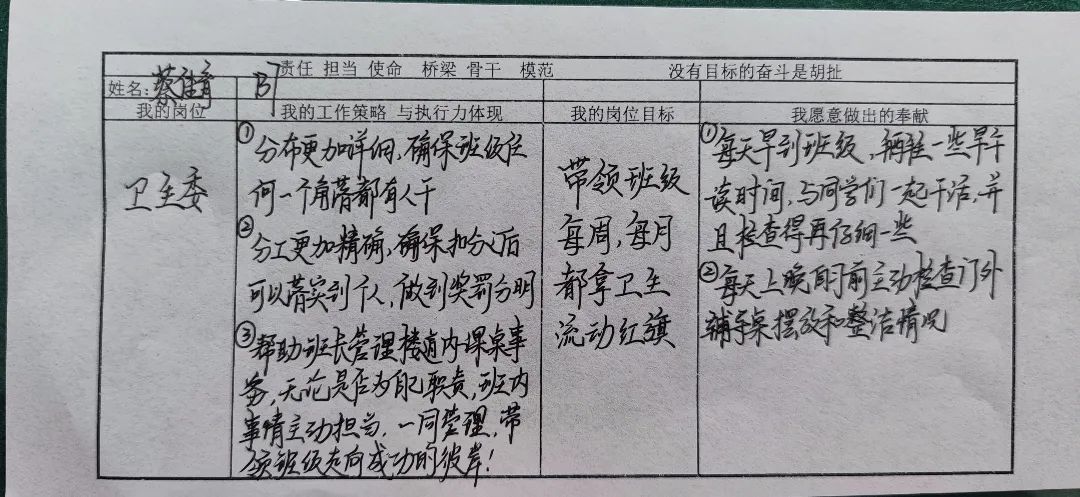 责任 担当 使命 桥梁 骨干 模范 没有目标的奋斗是胡扯
姓名:蔡佳育 B7
我的岗位 我的工作策略 与执行力体现 我的岗位目标 我愿意做出的奉献
卫生委
①分布更加详细,确保班级任
何一个角落都有人干
②分工更加精确,确保扣分后
可以落实到个人,做到奖罚分明
③帮助班长管理楼道内课桌事
务,无论是否为自己职责,班内
事情主动担当,一同管理,带
领班级走向成功的彼岸!
带领班级
每周,每月
都拿卫生
流动红旗
①每天早到班级,牺牲一些早干
读时间,与同学们一起干活,并
且检查得再仔细一些
②每天上晚自习前主动检查门外
辅导桌摆放和整洁情况